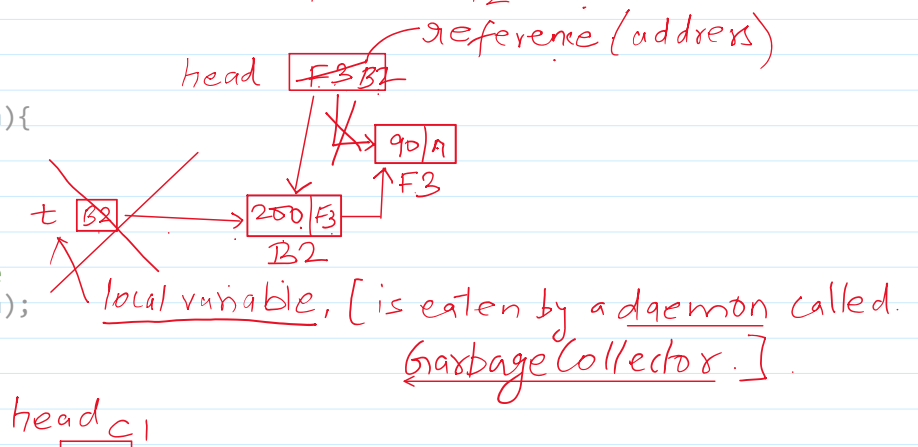 reference (address)
head F3 B2
){
90 A
F3
t B2 200 F3
B2
);
local variable, [is eaten by a daemon called.
Garbage Collector.]
head C1